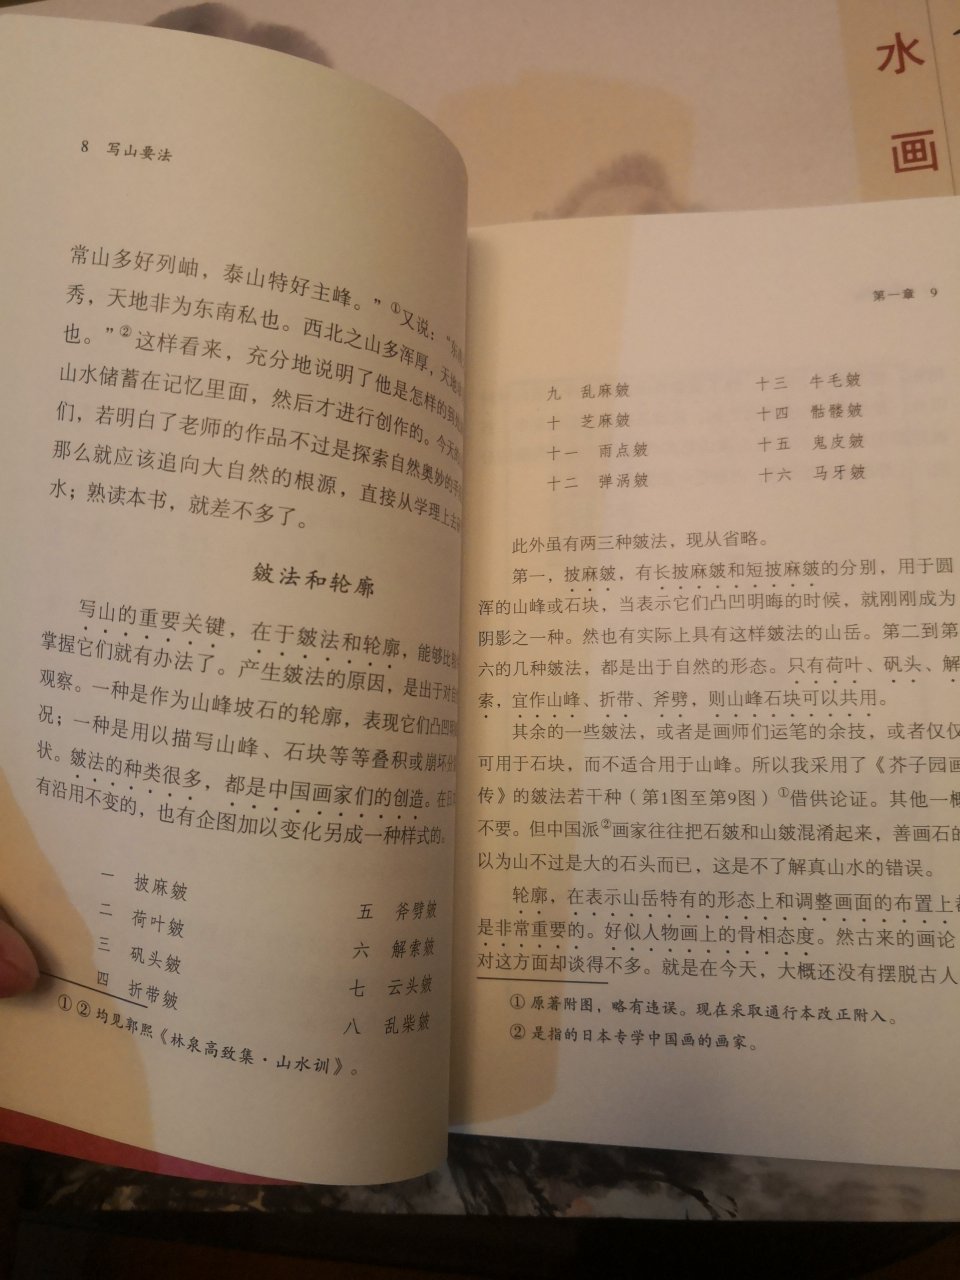 水
画
8 写山要法
常山多好列岫，泰山特好主峰。”①又说：“东南
秀，天地非为东南私也。西北之山多浑厚，天地
也。”②这样看来，充分地说明了他是怎样的到
山水储蓄在记忆里面，然后才进行创作的。今天的
们，若明白了老师的作品不过是探索自然奥妙的手
那么就应该追向大自然的根源，直接从学理上去
水；熟读本书，就差不多了。
皴法和轮廓
写山的重要关键，在于皴法和轮廓，能够比较
掌握它们就有办法了。产生皴法的原因，是出于对自
观察。一种是作为山峰坡石的轮廓，表现它们凸凹明
况；一种是用以描写山峰、石块等等叠积或崩坏
状。皴法的种类很多，都是中国画家们的创造。在日
有沿用不变的，也有企图加以变化另成一种样式的。
一 披麻皴
二 荷叶皴
三 矾头皴
四 折带皴
五 斧劈皴
六 解索皴
七 云头皴
八 乱柴皴
①②均见郭熙《林泉高致集·山水训》。
第一章 9
九 乱麻皴
十 芝麻皴
十一 雨点皴
十二 弹涡皴
十三 牛毛皴
十四 骷髅皴
十五 鬼皮皴
十六 马牙皴
此外虽有两三种皴法，现从省略。
第一，披麻皴，有长披麻皴和短披麻皴的分别，用于圆
浑的山峰或石块，当表示它们凸凹明晦的时候，就刚刚成为
阴影之一种。然也有实际上具有这样皴法的山岳。第二到第
六的几种皴法，都是出于自然的形态。只有荷叶、矾头、解
索，宜作山峰、折带、斧劈，则山峰石块可以共用。
其余的一些皴法，或者是画师们运笔的余技，或者仅仅
可用于石块，而不适合用于山峰。所以我采用了《芥子园画
传》的皴法若干种（第1图至第9图）①借供论证。其他一概
不要。但中国派②画家往往把石皴和山皴混淆起来，善画石的
以为山不过是大的石头而已，这是不了解真山水的错误。
轮廓，在表示山岳特有的形态上和调整画面的布置上都
是非常重要的。好似人物画上的骨相态度。然古来的画论
对这方面却谈得不多。就是在今天，大概还没有摆脱古人
① 原著附图，略有违误。现在采取通行本改正附入。
② 是指的日本专学中国画的画家。